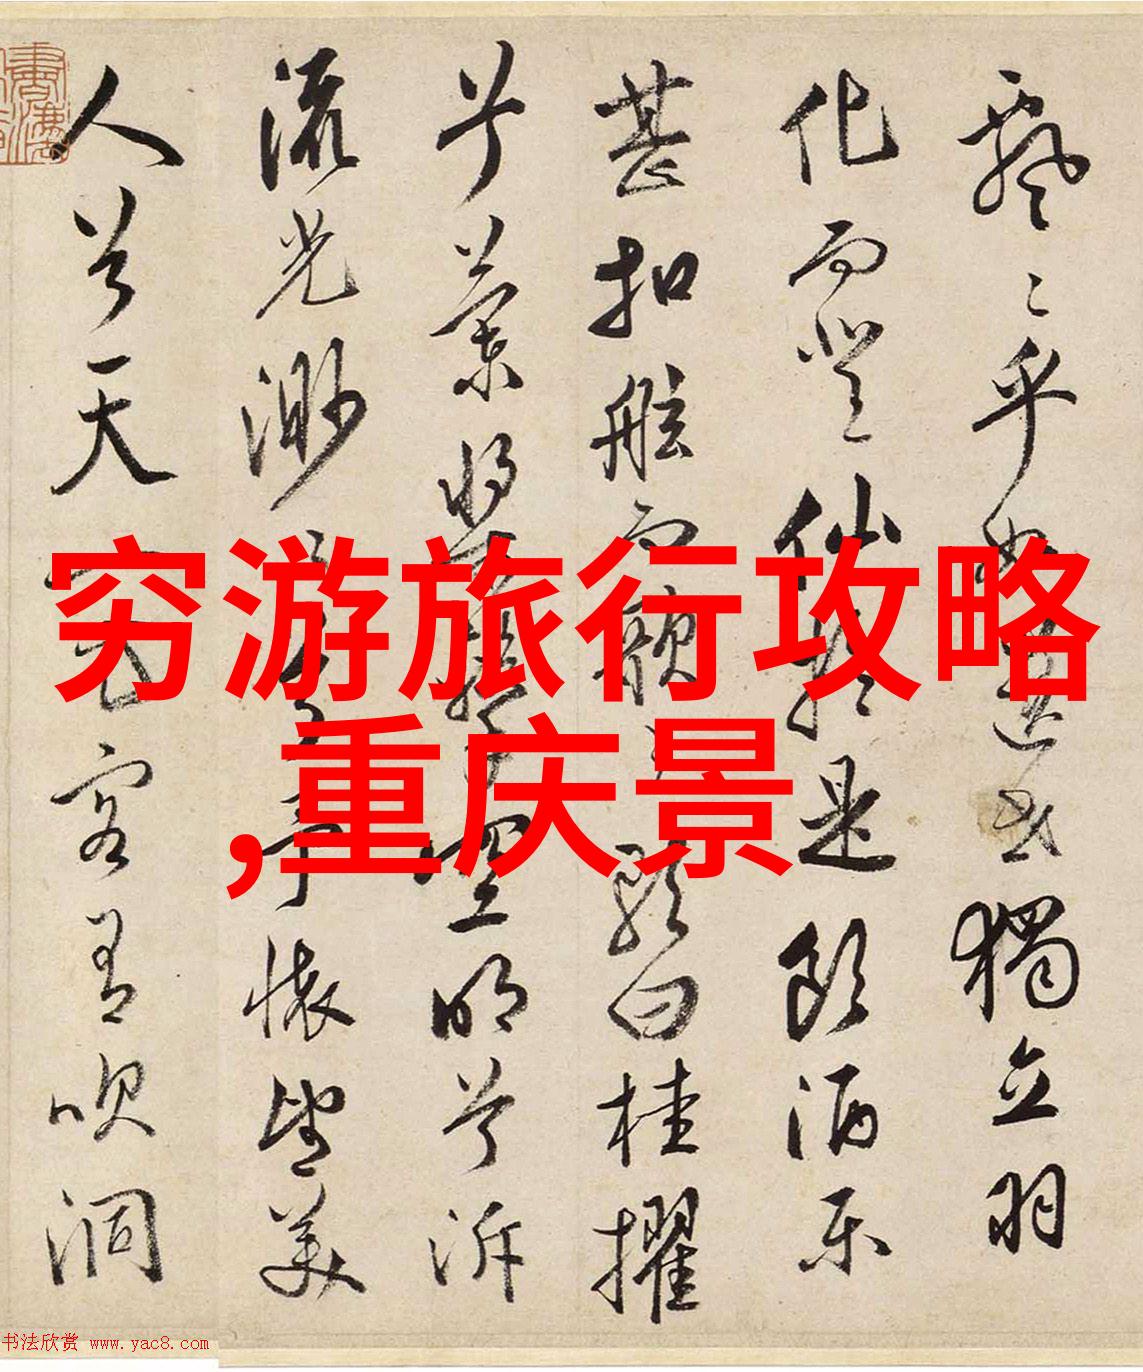 飄々乎如遺世獨立羽
化而登仙於是飲酒樂
甚扣舷而歌之歌曰桂櫂
兮蘭槳擊空明兮泝
流光渺渺兮予懷望美
人兮天一方客有吹洞
穷游旅行攻略
,重庆景
书法欣赏 www.yac8.com